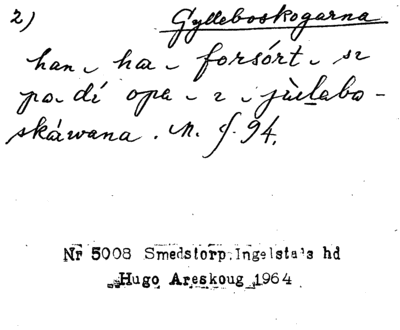 2) Gylleboskogarna
han ha forsórt sr
pa dí opa r jùlabo-
skáwana. M. f. 94.
Nr 5008 Smedstorp, Ingelstads hd
Hugo Areskoug 1964